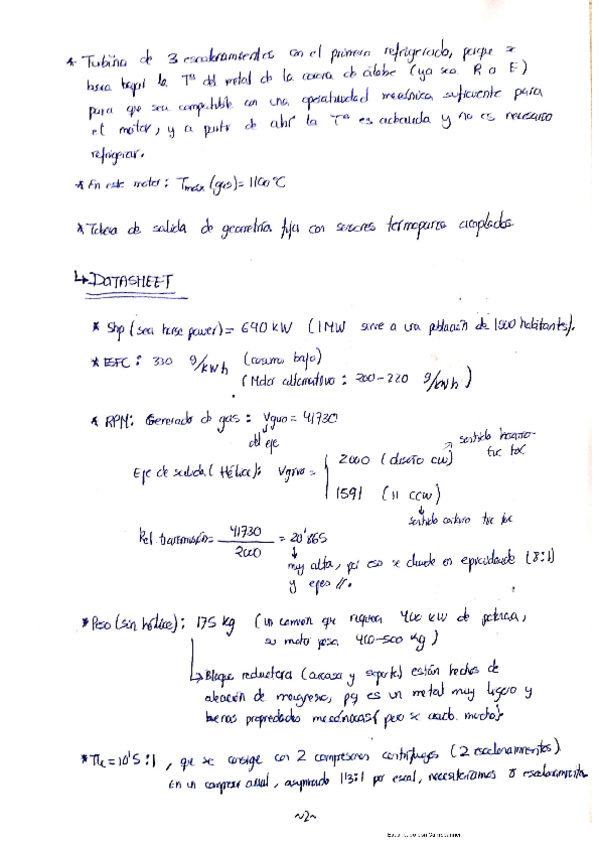 * Turbina de 3 escalonamientos con el primero refrigerado, porque se
busca bajar la Tª del metal de la corona de álabe (ya sea R o E)
para que sea compatible con una operatividad mecánica suficiente para
el motor, y a partir de ahí la Tª es adecuada y no es necesario
refrigerar.
* En este motor: Tmax (gas) = 1100ºC
* Tobera de salida de geometría fija con sensores termopares acoplados
↳ DATASHEET
* Shp (horse power) = 640 kW (1MW sirve a una población de 1000 habitantes).
* ESFC: 330 g/kWh (consumo bajo)
(Motor alternativo: 200-220 g/kWh)
* RPM: Generador de gas: Vgiro = 41730
del eje
sentido horario
tic tac
Eje de salida (Hélice): Vgiro =
2000 (diseño CW)
1591 (" CCW)
sentido contrario tic tac
Rel. transmisión = 41730 / 2000 = 20'865
muy alta, por eso se divide en epicicloidal (8:1)
y ejes //.
* Peso (sin hélice): 175 kg (un camión que requiera 400 kW de potencia,
su motor pesa 400-500 kg)
↳ Bloque reductora (carcasa y soporte) están hechos de
aleación de magnesio, pq es un metal muy ligero y
buenas propiedades mecánicas (pero se mucho)
* πc = 10'5:1, que se consigue con 2 compresores centrífugos (2 escalonamientos).
En un compresor axial, asumiendo 1'3:1 por escal, necesitaríamos 8 escalonamientos
~2~